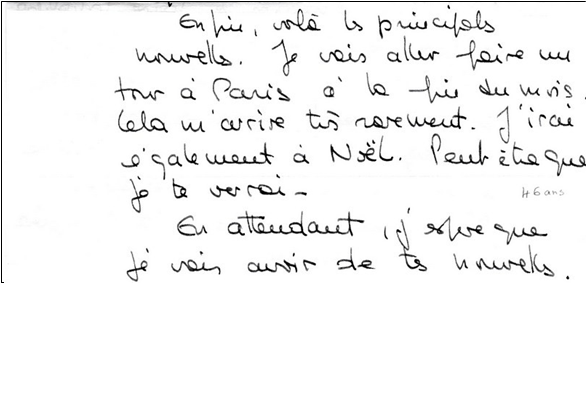 Enfin, voilà les principales
nouvelles. Je vais aller faire un
tour à Paris à la fin du mois.
Cela m'arrive très rarement. J'irai
également à Noël. Peut être que
je te verrai -
46 ans
En attendant, j'espère que
je vais avoir de tes nouvelles.